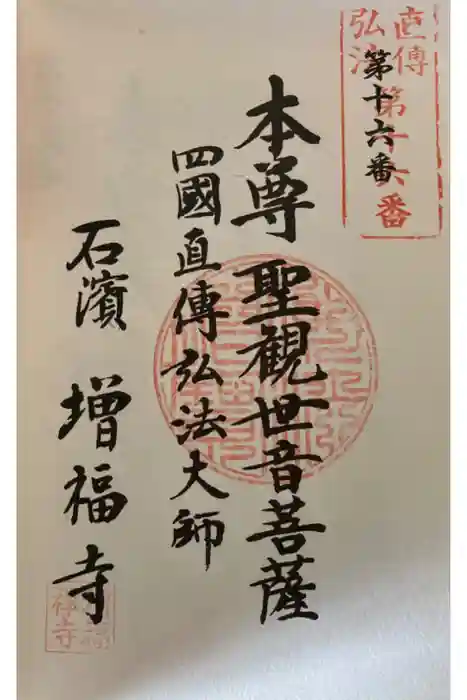 直傳
弘法
第十六番
第十六番
本尊 聖観世音菩薩
四國直傳弘法大師
石濱 増福寺